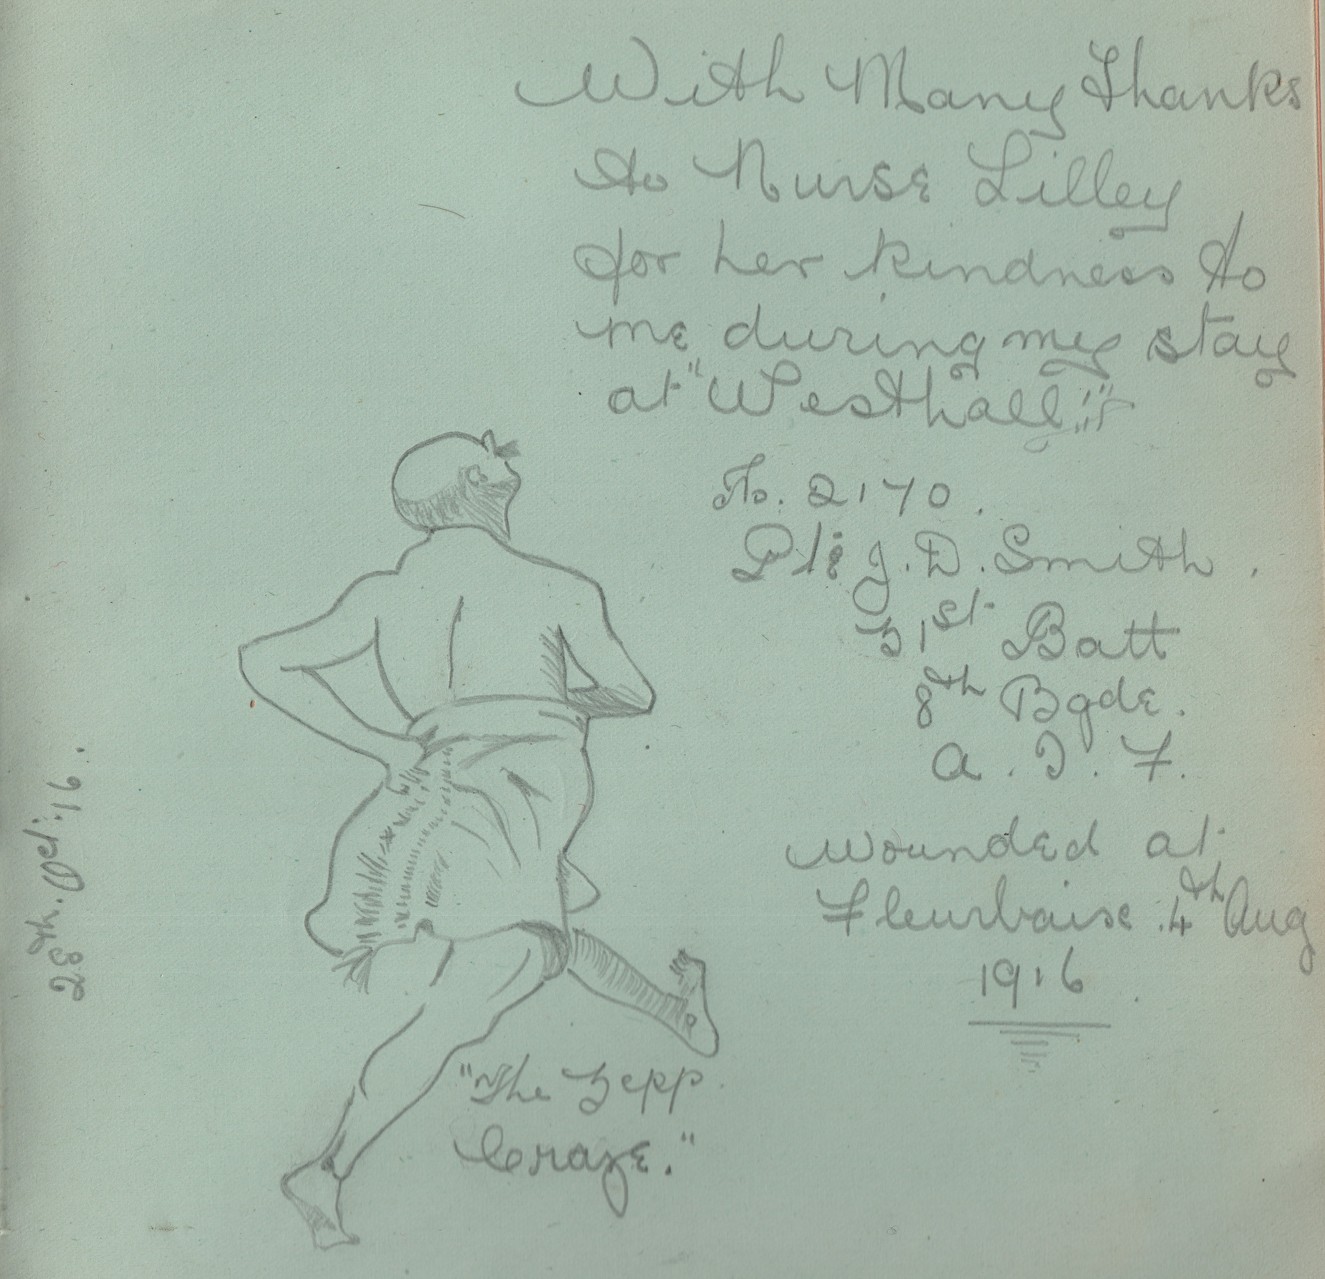 With Many Thanks
to Nurse Lilley
for her kindness to
me during my stay
at "Westhall"
No. 2170.
Pte J. D. Smith.
31st Batt
8th Bgde.
A. I. F.
Wounded at
Fleurbaise 4th Aug
1916.
"The Zepp
Craze."
28th. Oct. '16.